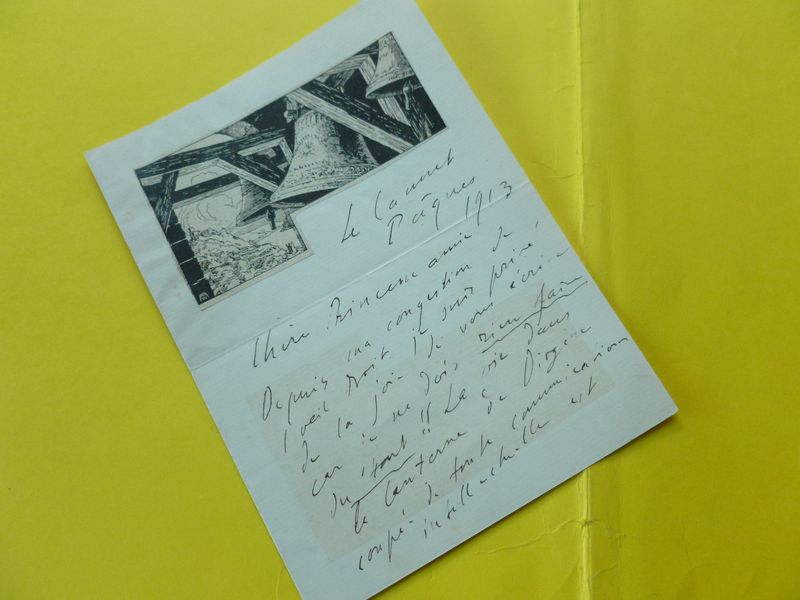 Le Cannet
Pâques 1913
Chère Princesse amie
Depuis ma congestion de
l'oeil droit je suis privé
de la joie de vous écrire
car je ne dois rien faire
du tout !! La vie dans
le lanterne de Diogène
coupé de toute communication
intellectuelle est